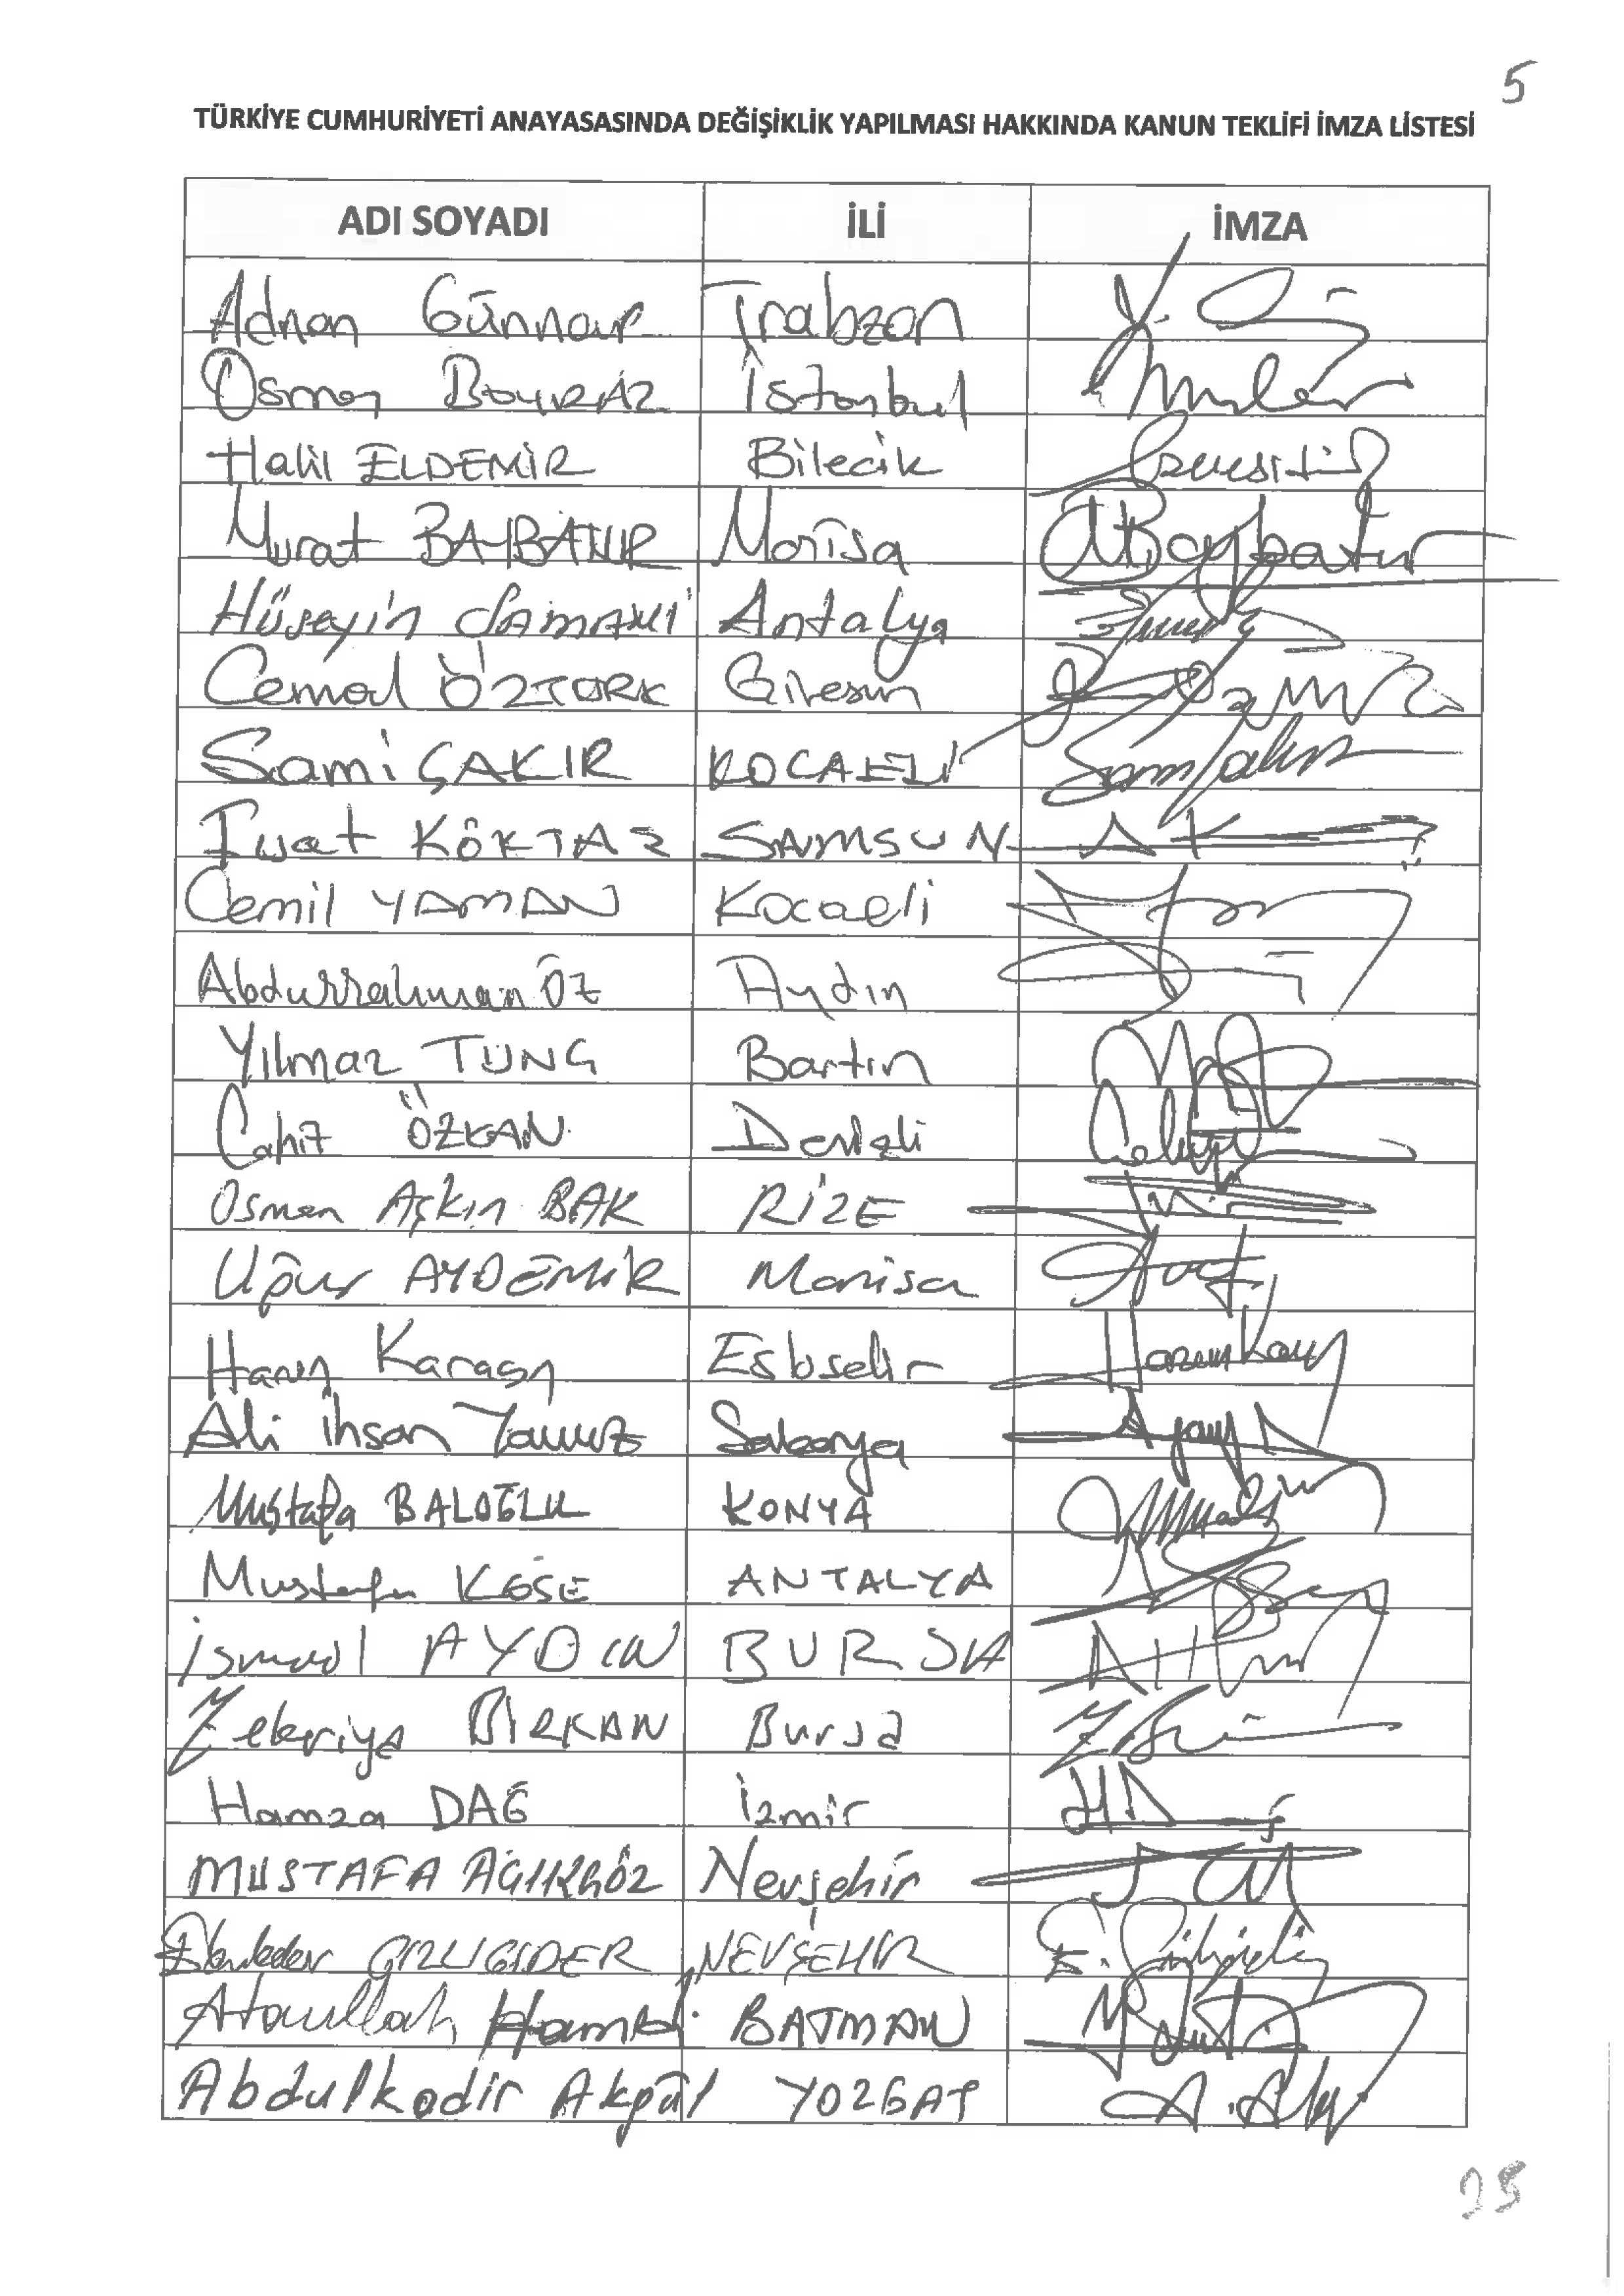 5
TÜRKİYE CUMHURİYETİ ANAYASASINDA DEĞİŞİKLİK YAPILMASI HAKKINDA KANUN TEKLİFİ İMZA LİSTESİ
ADI SOYADI İLİ İMZA
Adnan Günnar Trabzon
Osman BOYRAZ İstanbul
Halil ELDEMİR Bilecik
Murat BAYBATUR Manisa MBaybatur
Hüseyin SAMANİ Antalya
Cemal ÖZTÜRK Giresun
Sami ÇAKIR KOCAELİ
Fuat KÖKTAŞ SAMSUN
Cemil YAMAN Kocaeli
Abdurrahman ÖZ Aydın
Yılmaz TUNÇ Bartın
Cahit ÖZKAN Denizli
Osman Aşkın BAK RİZE
Uğur AYDEMİR Manisa
Harun Karacan Eskişehir
Ali İhsan Yavuz Sakarya
Mustafa BALOĞLU KONYA
Mustafa KÖSE ANTALYA
İsmail AYDIN BURSA
Zekeriya BİRKAN Bursa
Hamza DAĞ İzmir
MUSTAFA AÇIKGÖZ Nevşehir
Ebubekir GİZLİGİDER NEVŞEHİR
Ataullah Hamidi BATMAN
Abdulkadir Akgül YOZGAT
25